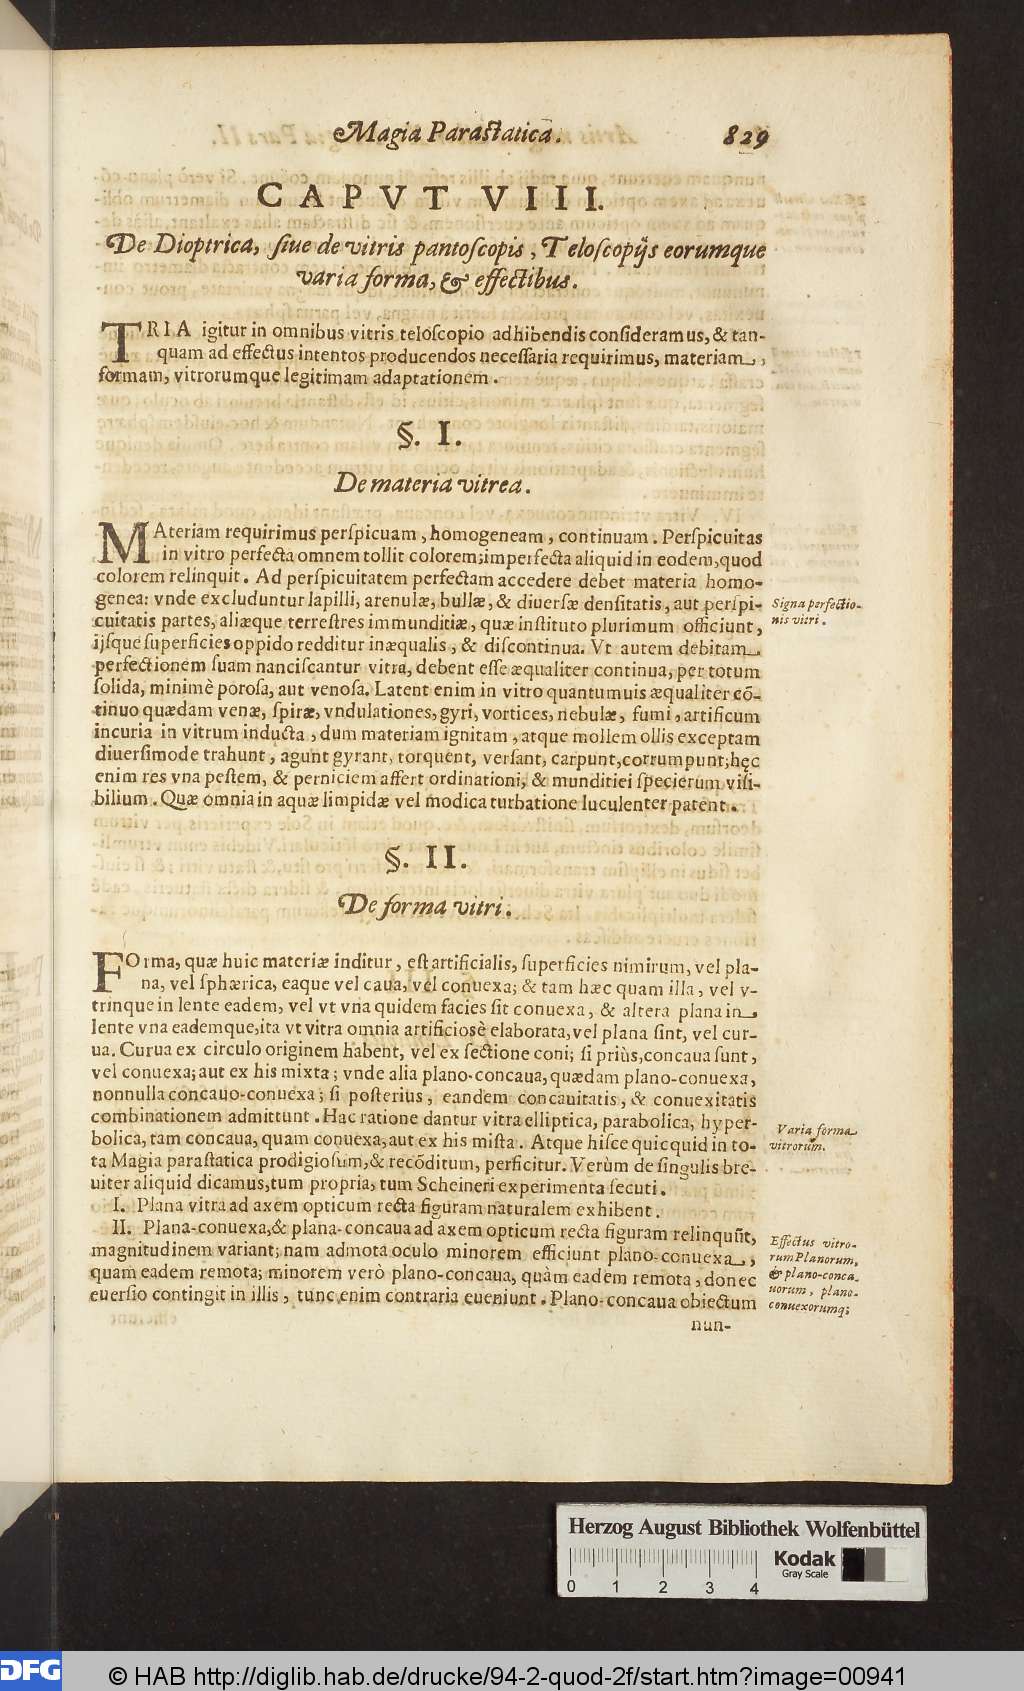 Magia Parastatica. 829
CAPVT VIII.
De Dioptrica, siue de vitris pantoscopis, Teloscopijs eorumque
varia forma, & effectibus.
TRIA igitur in omnibus vitris teloscopio adhibendis consideramus, & tan-
quam ad effectus intentos producendos necessaria requirimus, materiam,
formam, vitrorumque legitimam adaptationem.
§. I.
De materia vitrea.
MAteriam requirimus perspicuam, homogeneam, continuam. Perspicuitas
in vitro perfecta omnem tollit colorem; imperfecta aliquid in eodem, quod
colorem relinquit. Ad perspicuitatem perfectam accedere debet materia homo-
genea: vnde excluduntur lapilli, arenulæ, bullæ, & diuersæ densitatis, aut perspi-
cuitatis partes, aliæque terrestres immunditiæ, quæ instituto plurimum officiunt,
ijsque superficies oppido redditur inæqualis, & discontinua. Vt autem debitam
perfectionem suam nanciscantur vitra, debent esse æqualiter continua, per totum
solida, minimè porosa, aut venosa. Latent enim in vitro quantumuis æqualiter cõ-
tinuo quædam venæ, spiræ, vndulationes, gyri, vortices, nebulæ, fumi, artificum
incuria in vitrum inducta, dum materiam ignitam, atque mollem ollis exceptam
diuersimode trahunt, agunt gyrant, torquent, versant, carpunt, corrumpunt; hęc
enim res vna pestem, & perniciem affert ordinationi, & munditiei specierum visi-
bilium. Quæ omnia in aquæ limpidæ vel modica turbatione luculenter patent.
Signa perfectio-
nis vitri.
§. II.
De forma vitri.
FOrma, quæ huic materiæ inditur, est artificialis, superficies nimirum, vel pla-
na, vel sphærica, eaque vel caua, vel conuexa; & tam hæc quam illa, vel v-
trinque in lente eadem, vel vt vna quidem facies sit conuexa, & altera plana in
lente vna eademque, ita vt vitra omnia artificiosè elaborata, vel plana sint, vel cur-
ua. Curua ex circulo originem habent, vel ex sectione coni; si priùs, concaua sunt,
vel conuexa; aut ex his mixta; vnde alia plano-concaua, quædam plano-conuexa,
nonnulla concauo-conuexa; si posterius, eandem concauitatis, & conuexitatis
combinationem admittunt. Hac ratione dantur vitra elliptica, parabolica, hyper-
bolica, tam concaua, quam conuexa, aut ex his mista. Atque hisce quicquid in to-
ta Magia parastatica prodigiosum, & recõditum, perficitur. Verùm de singulis bre-
uiter aliquid dicamus, tum propria, tum Scheineri experimenta secuti.
I. Plana vitra ad axem opticum recta figuram naturalem exhibent.
II. Plana-conuexa, & plana-concaua ad axem opticum recta figuram relinquũt,
magnitudinem variant; nam admota oculo minorem efficiunt plano-conuexa,
quam eadem remota; minorem verò plano-concaua, quàm eadem remota, donec
euersio contingit in illis, tunc enim contraria eueniunt. Plano-concaua obiectum
nun-
Varia forma
vitrorum.
Effectus vitro-
rum Planorum,
& plano-conca-
uorum, plano-
conuexorumq;
Herzog August Bibliothek Wolfenbüttel
Kodak
Gray Scale
0 1 2 3 4
DFG
© HAB http://diglib.hab.de/drucke/94-2-quod-2f/start.htm?image=00941